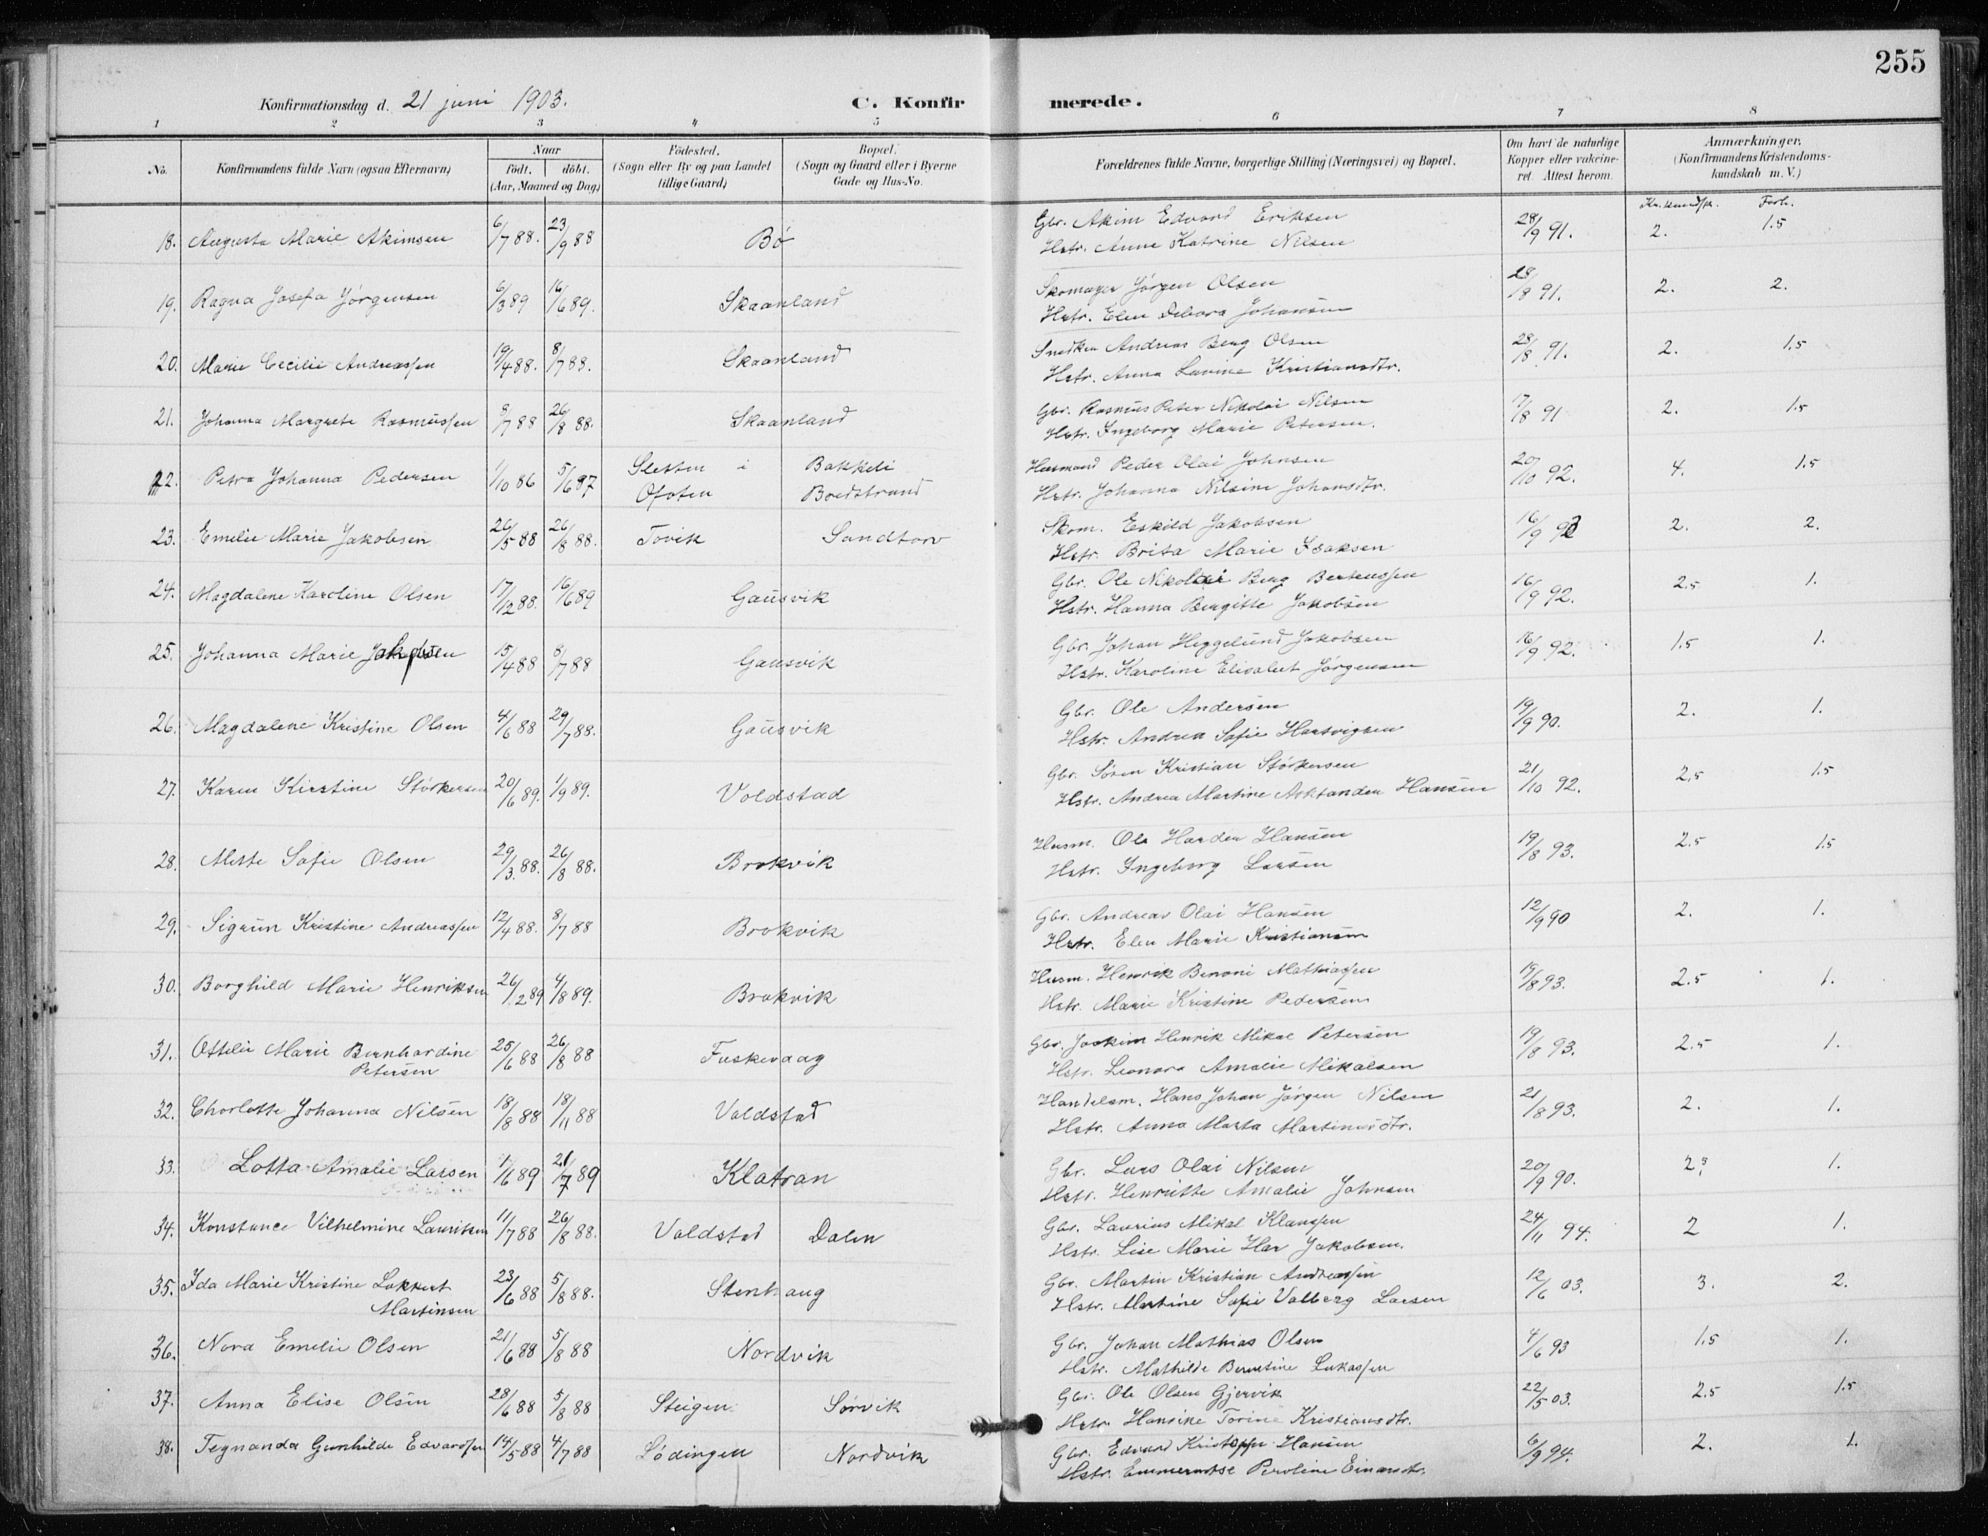 255
Konfirmationsdag d. 21 juni 1903. C. Konfirmerede.
1 2 3 4 5 6 7 8
No. Konfirmandens fulde Navn (ogsaa Efternavn) Naar født. døbt. (Aar, Maaned og Dag) Fødested. (Sogn eller By og paa Landet tillige Gaard) Bopæl. (Sogn og Gaard eller i Byerne Gade og Hus-No. Forældrenes fulde Navne, borgerlige Stilling (Næringsvei) og Bopæl. Om havt de naturlige Kopper eller vakcineret. Attest herom. Anmærkninger. (Konfirmandens Kristendomskundskab m. V.)
Kr. kundsk. Forh.
18. Augusta Marie Akimsen 6/7 88. 23/9 88 Bö Gbr. Akim Edvard Eriksen 28/9 91. 2. 1.5
Hstr. Anne Katrine Nilsen
19. Ragna Josefa Jörgensen 6/3 89 16/6 89. Skaanland Skomager Jörgen Olsen 28/8 91. 2. 2.
Hstr. Elen Debora Johansen
20. Marie Cecilie Andreassen 19/4 88. 8/7 88. Skaanland Snedker Andreas Berg Olsen 28/8 91. 2. 1.5
Hstr. Anna Lavine Kristiansdtr.
21. Johanna Margrete Rasmussen 9/7 88 26/8 88. Skaanland Gbr. Rasmus Peter Nikolai Nilsen 17/8 91 2. 1.5
Hstr. Ingeborg Marie Petersen.
22. Petra Johanna Pedersen 1/10 86 5/6 87 Sletten i Ofoten Bakkeli Boedstrand Husmand Peder Olai Johnsen 20/10 92. 4. 1.5
Hstr. Johanna Nilsine Johansdtr.
23. Emilie Marie Jakobsen 26/5 88 26/8 88. Tovik Sandtorv Skom. Eskild Jakobsen 16/9 92 2. 2.
Hstr. Brita Marie Isaksen
24. Magdalene Karoline Olsen 17/12 88. 16/6 89 Gausvik Gbr. Ole Nikolai Berg Bertenssen 16/9 92. 2.5 1.
Hstr. Hanna Bergitte Jakobsen
25. Johanna Marie Jakobsen 15/4 88 8/7 88 Gausvik Gbr. Johan Heggelund Jakobsen 16/9 92. 1.5 1.
Hstr. Karoline Elisabet Jörgensen
26. Magdalene Kristine Olsen 4/6 88 29/7 88. Gausvik Gbr. Ole Andersen 19/9 90. 2. 1.
Hstr. Andrea Sofie Hartvigsen
27. Karen Kirstine Störkersen 20/6 89. 1/9 89. Voldstad Gbr. Sören Kristian Störkersen 21/10 92. 2.5 1.5
Hstr. Andrea Martine Hansen
28. Mette Sofie Olsen 29/3 88. 26/8 88. Brokvik Husm. Ole Harder Hansen 19/8 93. 2.5 1.5
Hstr. Ingeborg Larsen
29. Sigrun Kristine Andreassen 12/4 88. 8/7 88 Brokvik Gbr. Andreas Olai Hansen 12/9 90 2. 1.
Hstr. Elen Marie Kristiansen
30. Borghild Marie Henriksen 26/2 89 4/8 89. Brokvik Husm. Henrik Benoni Mathiassen 19/8 93. 2.5 1.
Hstr. Marie Kristine Pedersen
31. Ottilie Marie Bernhardine Petersen 25/6 88 26/8 88 Fuskevaag Gbr. Joakim Henrik Mikal Petersen 19/8 93. 2.5 1.
Hstr. Leonora Amalie Mikalsen
32. Chorlotte Johanna Nilsen 18/8 88 18/11 88 Voldstad Handelsm. Hans Johan Jörgen Nilsen 21/8 93. 2. 1.
Hstr. Anna Marta Martinusdtr.
33. Lotta Amalie Larsen 1/6 89 21/7 89 Klatran Gbr. Lars Olai Nilsen 20/9 90. 2. 1.
Hstr. Henriette Amalie Johnsen
34. Konstance Vilhelmine Lauritsen 11/7 88 26/8 88. Voldstad Dalen Gbr. Laurius Mikal Klaussen 24/11 94. 2 1.
Hstr. Lise Marie Har Jakobsen.
35. Ida Marie Kristine Lokkert Martinsen 23/6 88 5/8 88. Stenhaug Gbr. Martin Kristian Andreassen 12/6 03. 3. 2.
Hstr. Martine Sofie Valberg Larsen
36. Nora Emelie Olsen 21/6 88 5/8 88 Nordvik Gbr. Johan Mathias Olsen 4/6 93 1.5 1.
Hstr. Mathilde Berntine Lukassen
37. Anna Elise Olsen 28/6 88 5/8 88 Steigen Sørvik Gbr. Ole Olsen Gjervik 22/5 03. 2.5 1.5
Hstr. Hansine Torine Kristiansdtr.
38. Tegnanda Gunhilde Edvardsen 14/5 88 4/7 88 Lödingen Nordvik Gbr. Edvard Kristoffer Hansen 6/9 94. 2. 1.
Hstr. Emmerentse Peroline Einarsdtr.